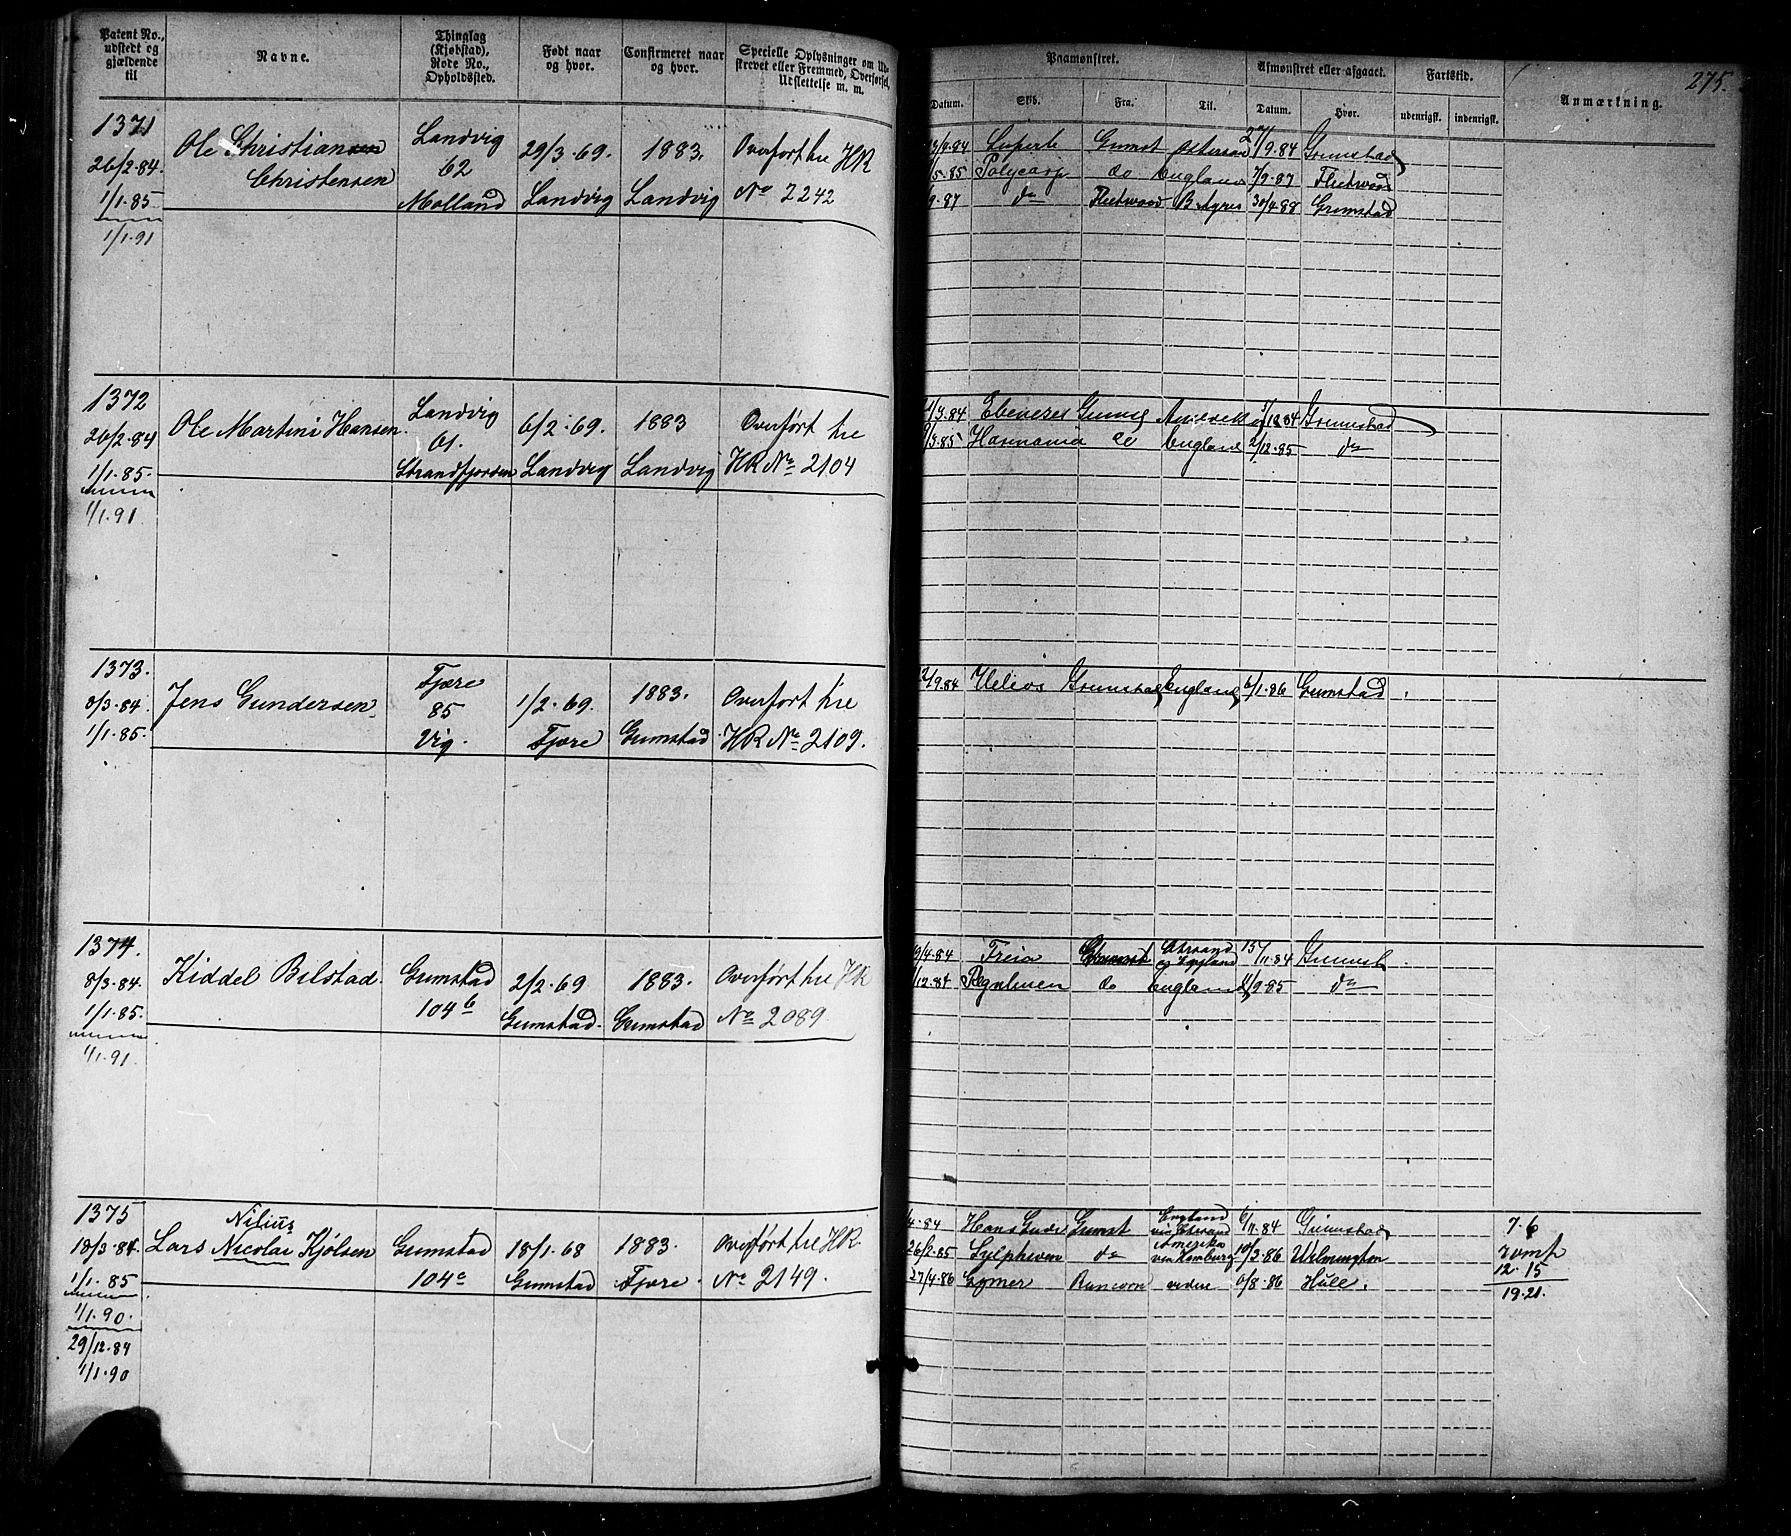 Patent No., udstedt og gjældende til
Navne.
Thinglag (Kjøbstad), Rode No., Opholdssted.
Født naar og hvor.
Confirmeret naar og hvor.
Specielle Oplysninger om Udskrevet eller Fremmed, Overførsel, Udslettelse m. m.
Paamønstret.
Afmønstret eller afgaaet.
Fartstid.
Anmærkning.
275.
Datum.
Skib.
Fra.
Til.
Datum.
Hvor.
udenrigsk.
indenrigsk.
1371
26/2·84.
1/1·85
1/1·91
Ole Christiansen
Christensen
Landvig
62
Molland
29/3·69.
Landvig
1883.
Landvig
Overført tre HR
No 2242
/9·84 Superb Grmst 27/9·84 Grimstad
/5·85 Polycarp do England 7/9·87 Fleetwood
/9·87 do Fleetwood B Ayres 30/4·88 Grimstad
1372
26/2·84
1/1·85
1/1·91
Ole Martini Hansen
Landvig
61.
Strandfjorden
6/2·69.
Landvig
1883
Landvig
Overført tre
HR No 2104
/3·84 Ebenezer /12·84 Grimstad
/3·85 England 2/12·85 do
1373.
8/3·84.
1/1·85.
Jens Gundersen
Fjære
85
Vig.
1/2·69.
Fjære
1883.
Grmstad
Overført tre
HR No 2109.
2/9·84 Helios Grimstad England 6/1·86 Grmstad
1374.
8/3·84.
1/1·85.
1/1·91.
Kiddel Bilstad.
Grmstad
104 b
2/2·69
Grmstad.
1883.
Grmstad
Overført tre HR
No 2089.
9/4·84 Freia Grmst 15/11·84 Grimst
/12·84 do England 1/9·85 do
1375
18/3·84.
1/1·85
1/1·90.
29/12·84
1/1·90
Nilius
Lars Nicolai Kjølsen
Grmstad
104 c
18/1·68
Grmstad
1883.
Fjære.
Overført tre HR.
No 2149.
/4·84 Hans Grmst England 6/11·84 Grimstad
26/2·85 Sylphiden do Amerika via Hamburg 10/3·86 Wilmington
27/4·86 Gymer Runcorn videre 6/8·86 Hull.
7·6
12·15
19·21.